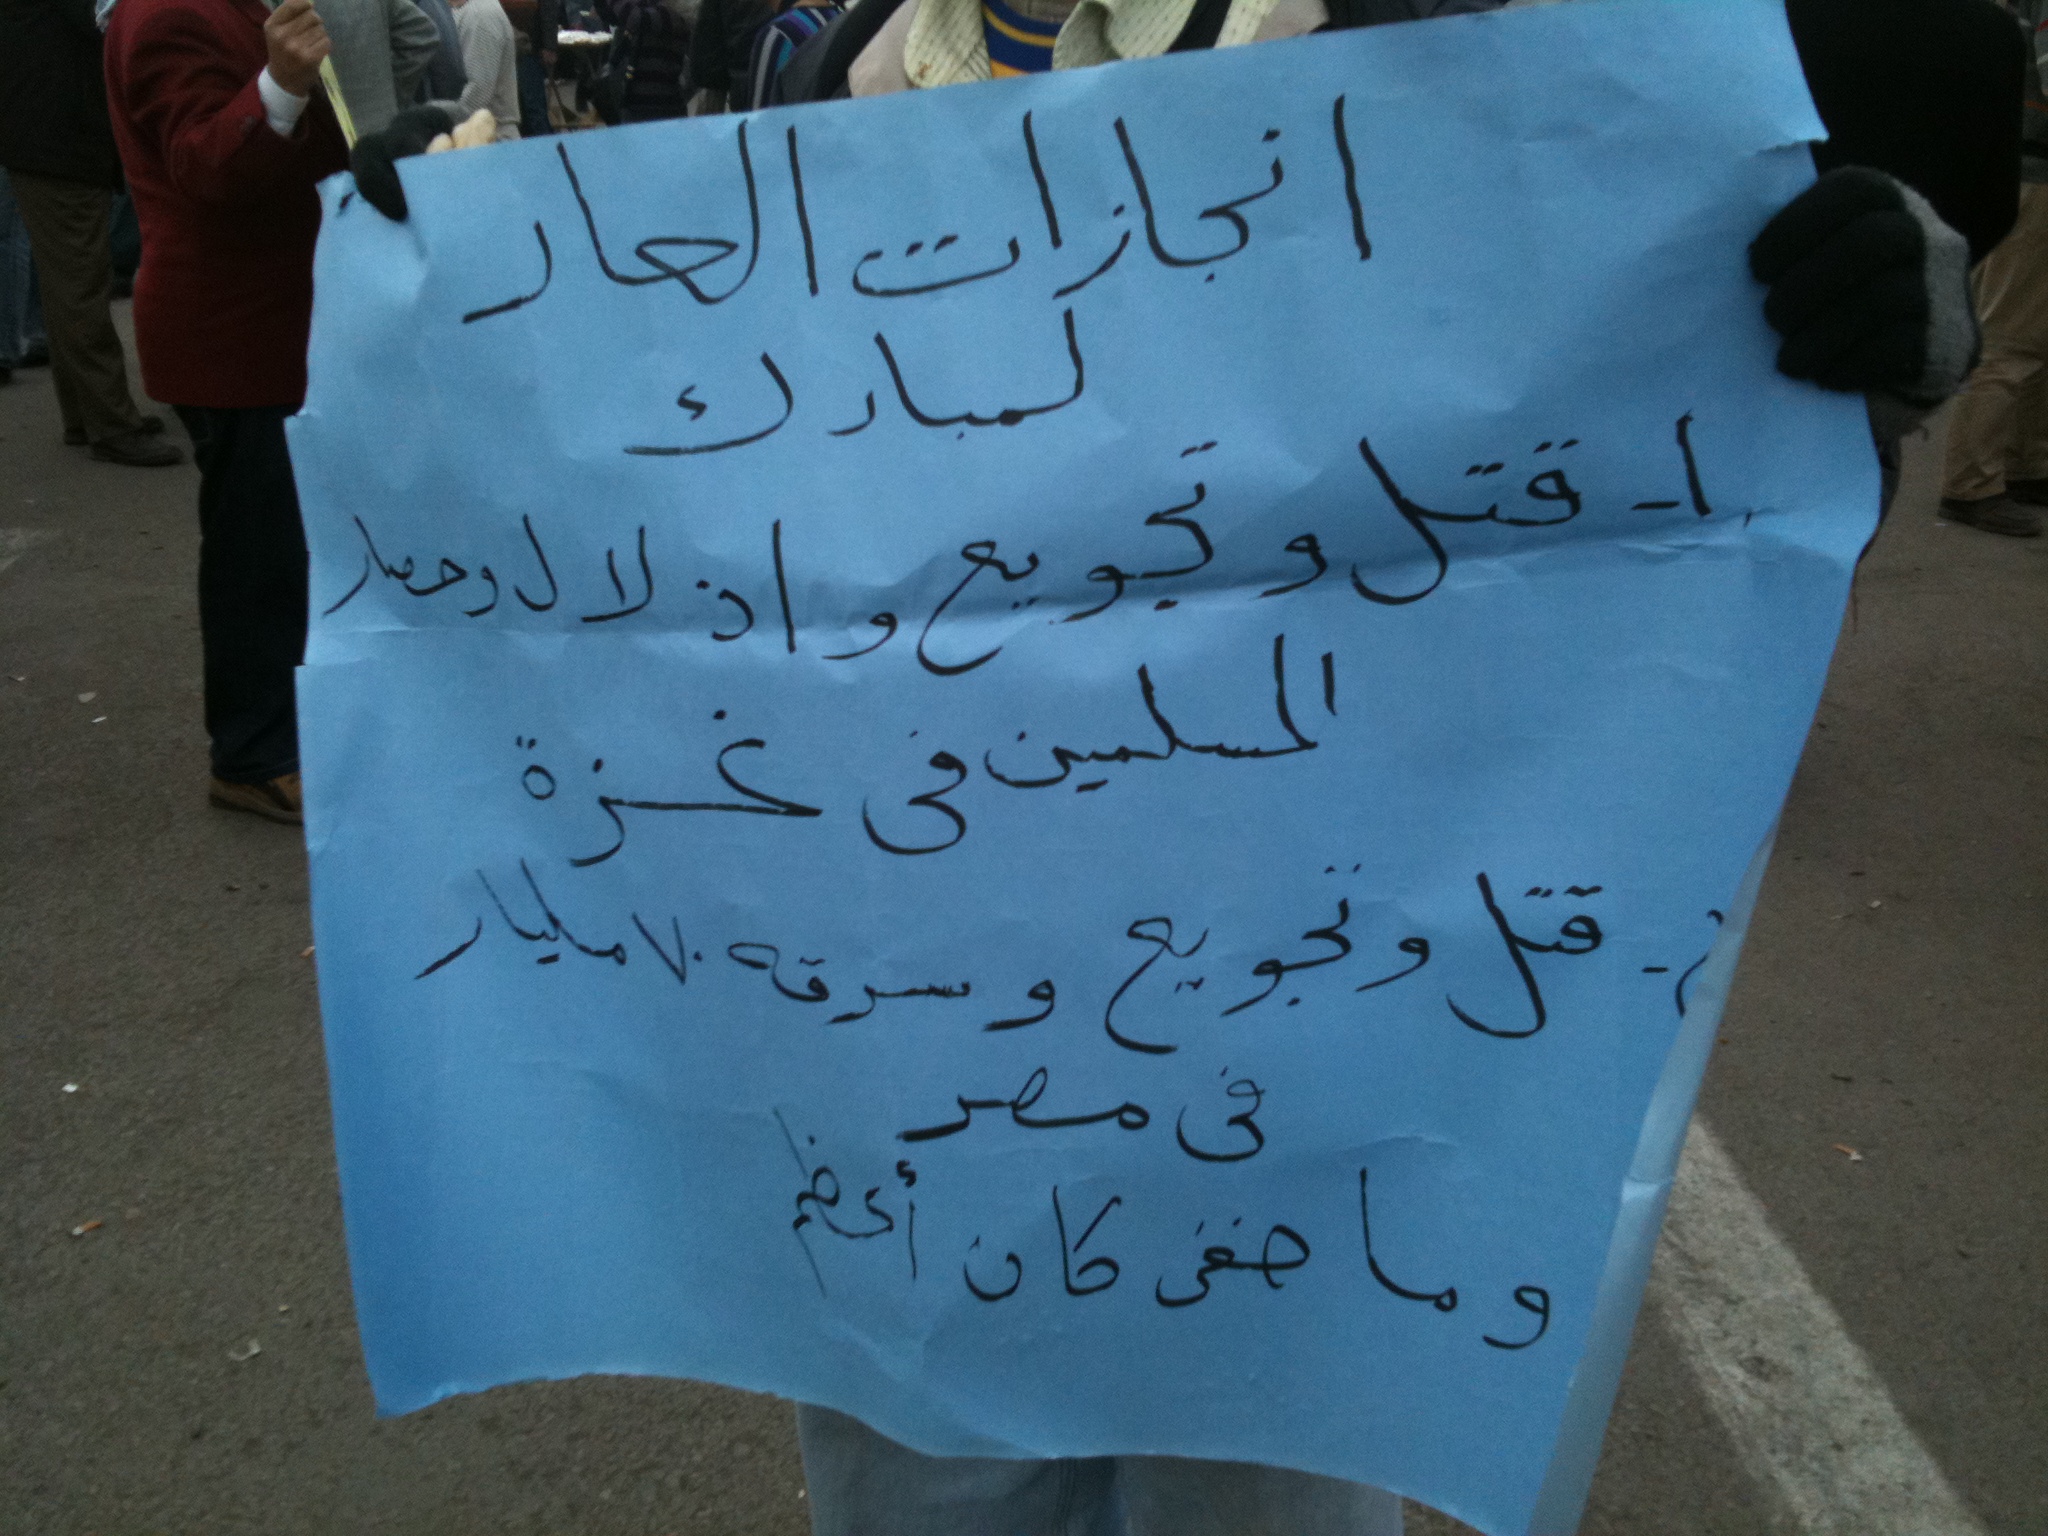 انجازات العار
لمبارك
١- قتل وتجويع واذلال وحصار
المسلمين فى غزة
٢- قتل وتجويع وسرقه ٧٠ مليار
فى مصر
وما خفى كان أعظم